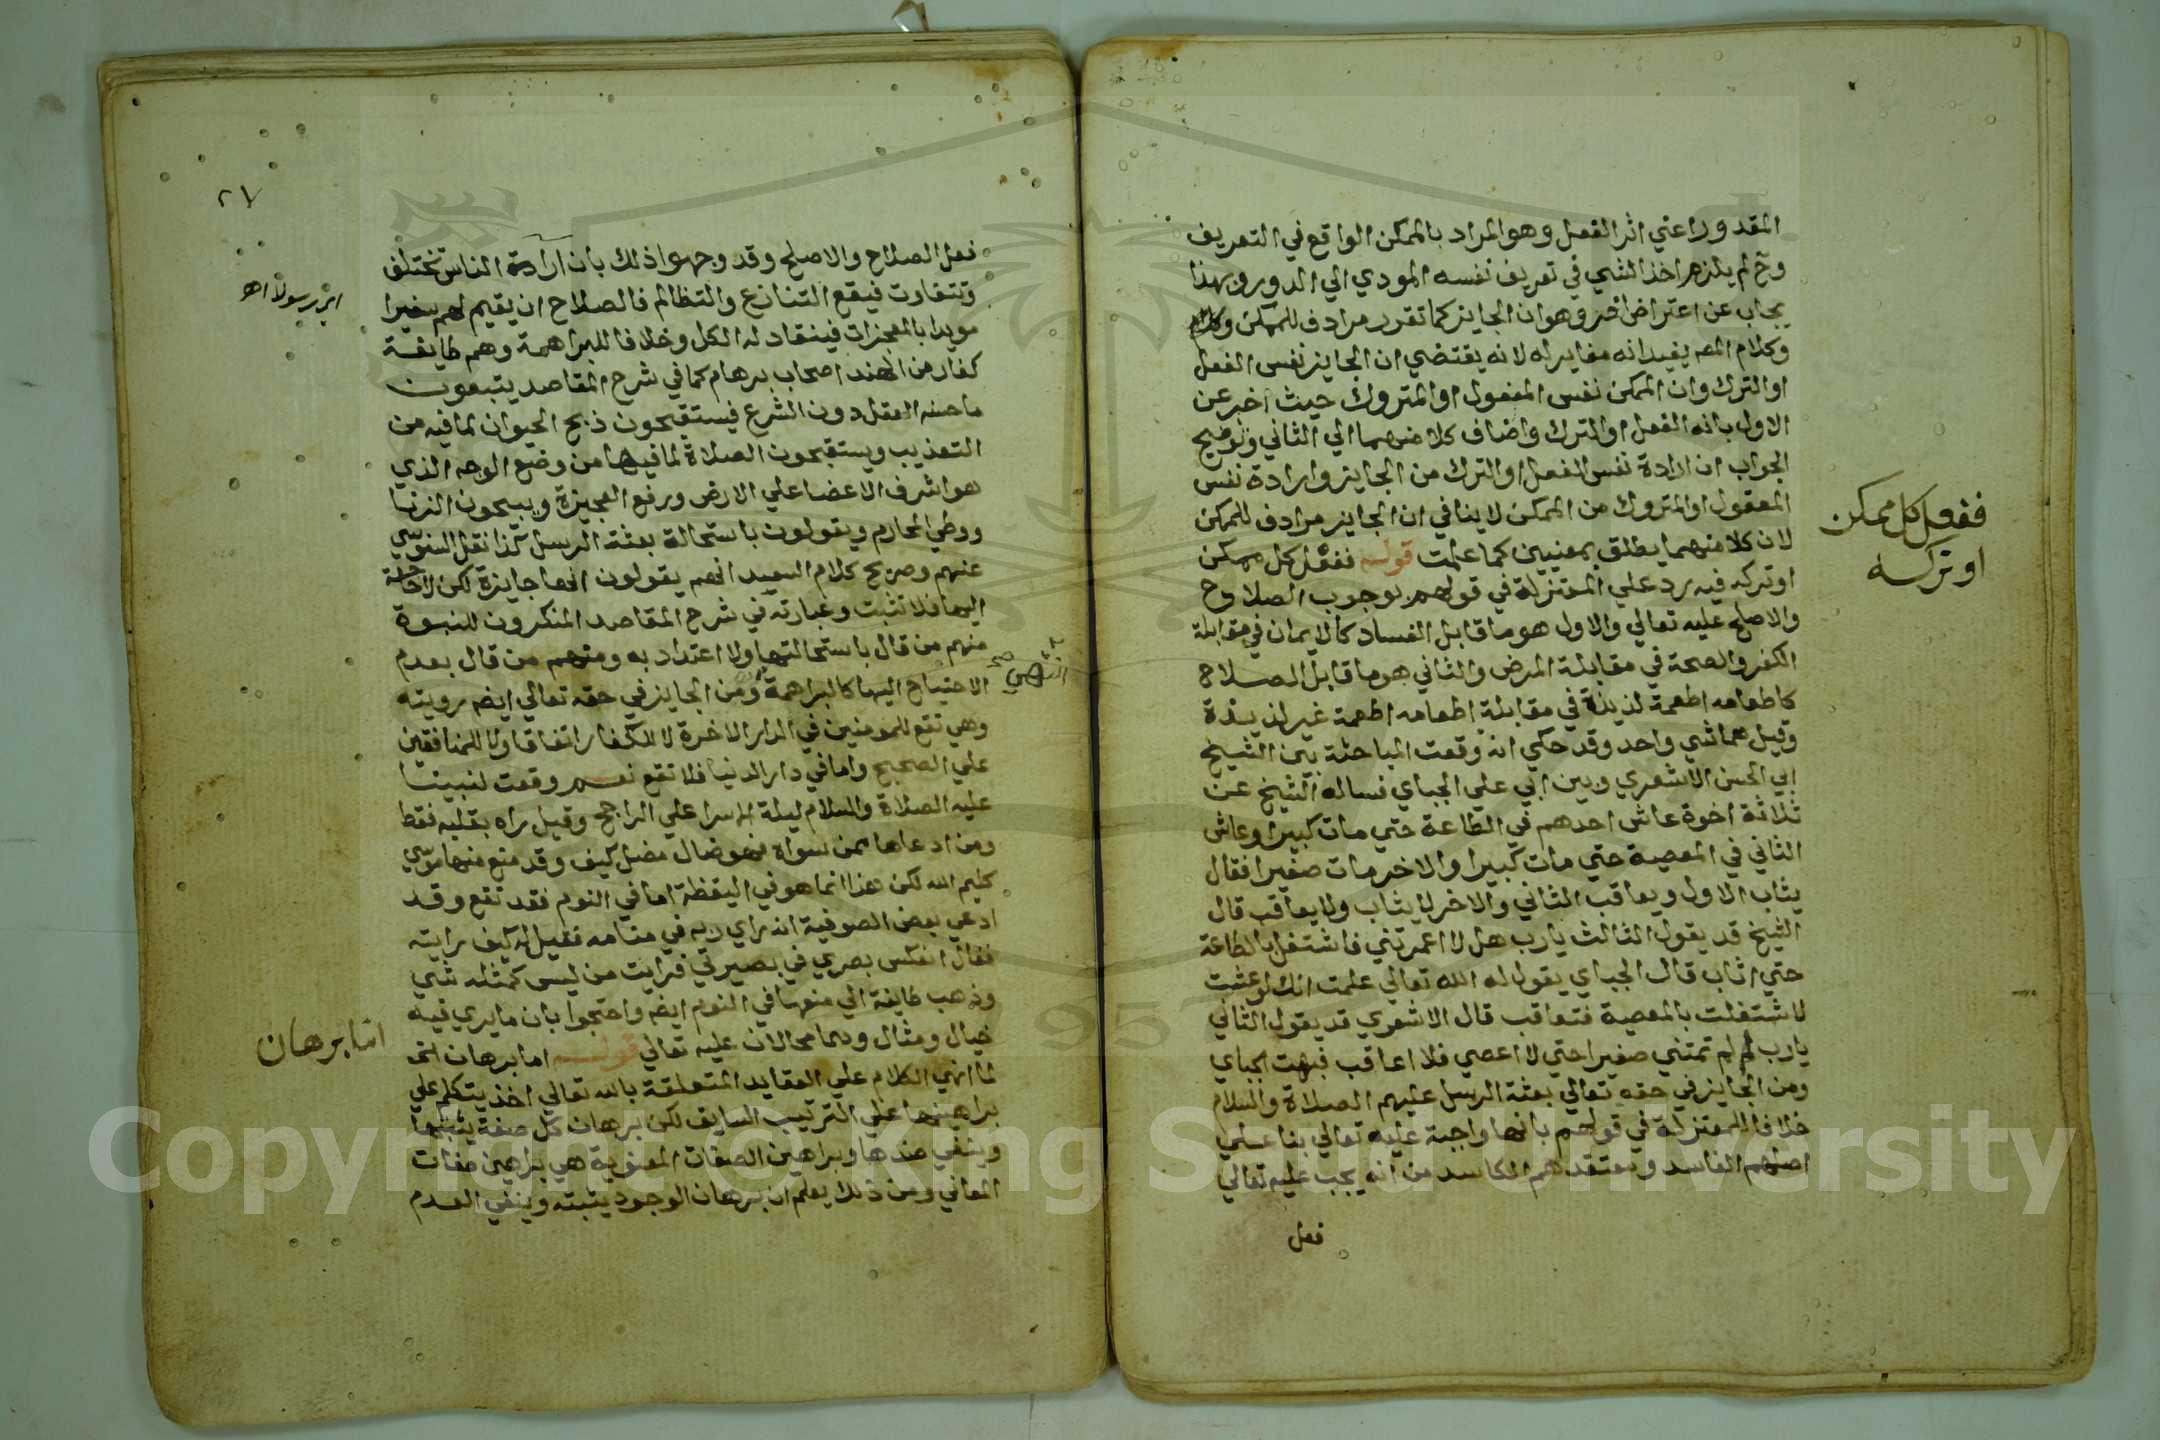 المقدور اعني اثر الفعل وهو المراد بالممكن الواقع في التعريف
وح لم يلزم اخذ الشي في تعريف نفسه المودي الي الدور وبهذا
يجاب عن اعتراض اخر وهو ان الجايز كما تقرر مرادف للممكن
وكلام المصـ يفيد انه مغاير له لانه يقتضي ان الجايز نفس الفعل
او الترك وان الممكن نفس المفعول او المتروك حيث اخبر عن
الاول بانه الفعل او الترك واضاف كلا منهما الي الثاني وتوضيح
الجواب ان ارادة نفس الفعل او الترك من الجايز وارادة نفس
المفعول او المتروك من الممكن لا ينافي ان الجايز مرادف للممكن
لان كلا منهما يطلق بمعنيين كما علمت قوله ففعل كل ممكن
او تركه فيه رد علي المعتزلة في قولهم بوجوب الصلاح
والاصلح عليه تعالي والاول هو ما قابل الفساد كالايمان في مقابلة
الكفر والصحة في مقابلة المرض والثاني هو ما قابل الصلاح
كاطعامه اطعمة لذيذة في مقابلة اطعامه اطعمة غير لذيذة
وقيل هما شي واحد وقد حكي انه وقعت المباحثة بين الشيخ
ابي الحسن الاشعري وبين ابي علي الجباي فساله الشيخ عن
ثلاثة اخوة عاش احدهم في الطاعة حتي مات كبيرا وعاش
الثاني في المعصية حتي مات كبيرا والاخر مات صغيرا فقال
يثاب الاول ويعاقب الثاني والاخر لا يثاب ولا يعاقب قال
الشيخ قد يقول الثالث يارب هل لا اعمرتني فاشتغل بالطاعة
حتي اثاب قال الجباي يقول له الله تعالي علمت انك لو عشت
لاشتغلت بالمعصية فتعاقب قال الاشعري قد يقول الثاني
يارب لم لم تمتني صغيرا حتي لا اعصي فلا اعاقب فبهت الجباي
ومن الجايز في حقه تعالي بعثة الرسل عليهم الصلاة والسلام
خلافا للمعتزلة في قولهم بانها واجبة عليه تعالي بنا علي
اصلهم الفاسد ومعتقدهم الكاسد من انه يجب عليه تعالي
فعل
ففعل كل ممكن
او تركه
٢٧
فعل الصلاح والاصلح وقد وجهوا ذلك بان ارادة الناس تختلف
وتتفاوت فيقع التنازع والتظالم فالصلاح ان يقيم لهم
مويدا بالمعجزات فينقاد له الكل وخلافا للبراهمة وهم طايفة
كفار من الهند اصحاب برهام كما في شرح المقاصد يتبعون
ما حسنه العقل دون الشرع فيستقبحون ذبح الحيوان لما فيه من
التعذيب ويستقبحون الصلاة لما فيها من وضع الوجه الذي
هو اشرف الاعضا علي الارض ورفع العجيزة ويبيحون الزنا
ووطي المحارم ويقولون باستحالة بعثة الرسل كذا نقل السنوسي
عنهم وصريح كلام السعيد انهم يقولون انها جايزة لكن لا حاجة
اليها فلا تثبت وعبارته في شرح المقاصد المنكرون للنبوة
منهم من قال باستحالتها ولا اعتداد به ومنهم من قال بعدم
الاحتياج اليها كالبراهمة ومن الجايز في حقه تعالي ايضـ رويته
وهي تقع للمومنين في الدار الاخرة لا للكفار اتفاقا ولا للمنافقين
علي الصحيح واما في دار الدنيا فلا تقع نعم وقعت لنبينا
عليه الصلاة والسلام ليلة الاسرا علي الراجح وقيل راه بقلبه فقط
ومن ادعاها ممن سواه فهو ضال مضل كيف وقد منع منها موسي
كليم الله لكن هذا انما هو في اليقظة اما في النوم فقد تقع وقد
ادعي بعض الصوفية انه راي ربه في منامه فقيل له كيف رايته
فقال انعكس بصري في بصيرتي فرايت من ليس كمثله شي
وذهب طايفة الي منعها في النوم ايضـ واحتجوا بان ما يري فيه
خيال ومثال وهما محالان عليه تعالي قوله اما برهان الخ
لما انهي الكلام علي العقايد المتعلقة بالله تعالي اخذ يتكلم علي
براهينها علي الترتيب السابق لكن برهان كل صفة يثبتها
وينفي ضدها وبراهين الصفات المعنوية هي براهين صفات
المعاني ومن ذلك يعلم ان برهان الوجود يثبته وينفي العدم
انتهي صح
اما برهان
Copyright © King Saud University
1957